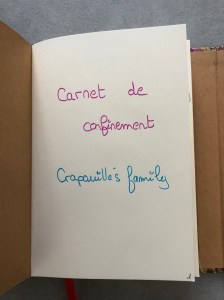 Carnet de
confinement
Crapouille's family